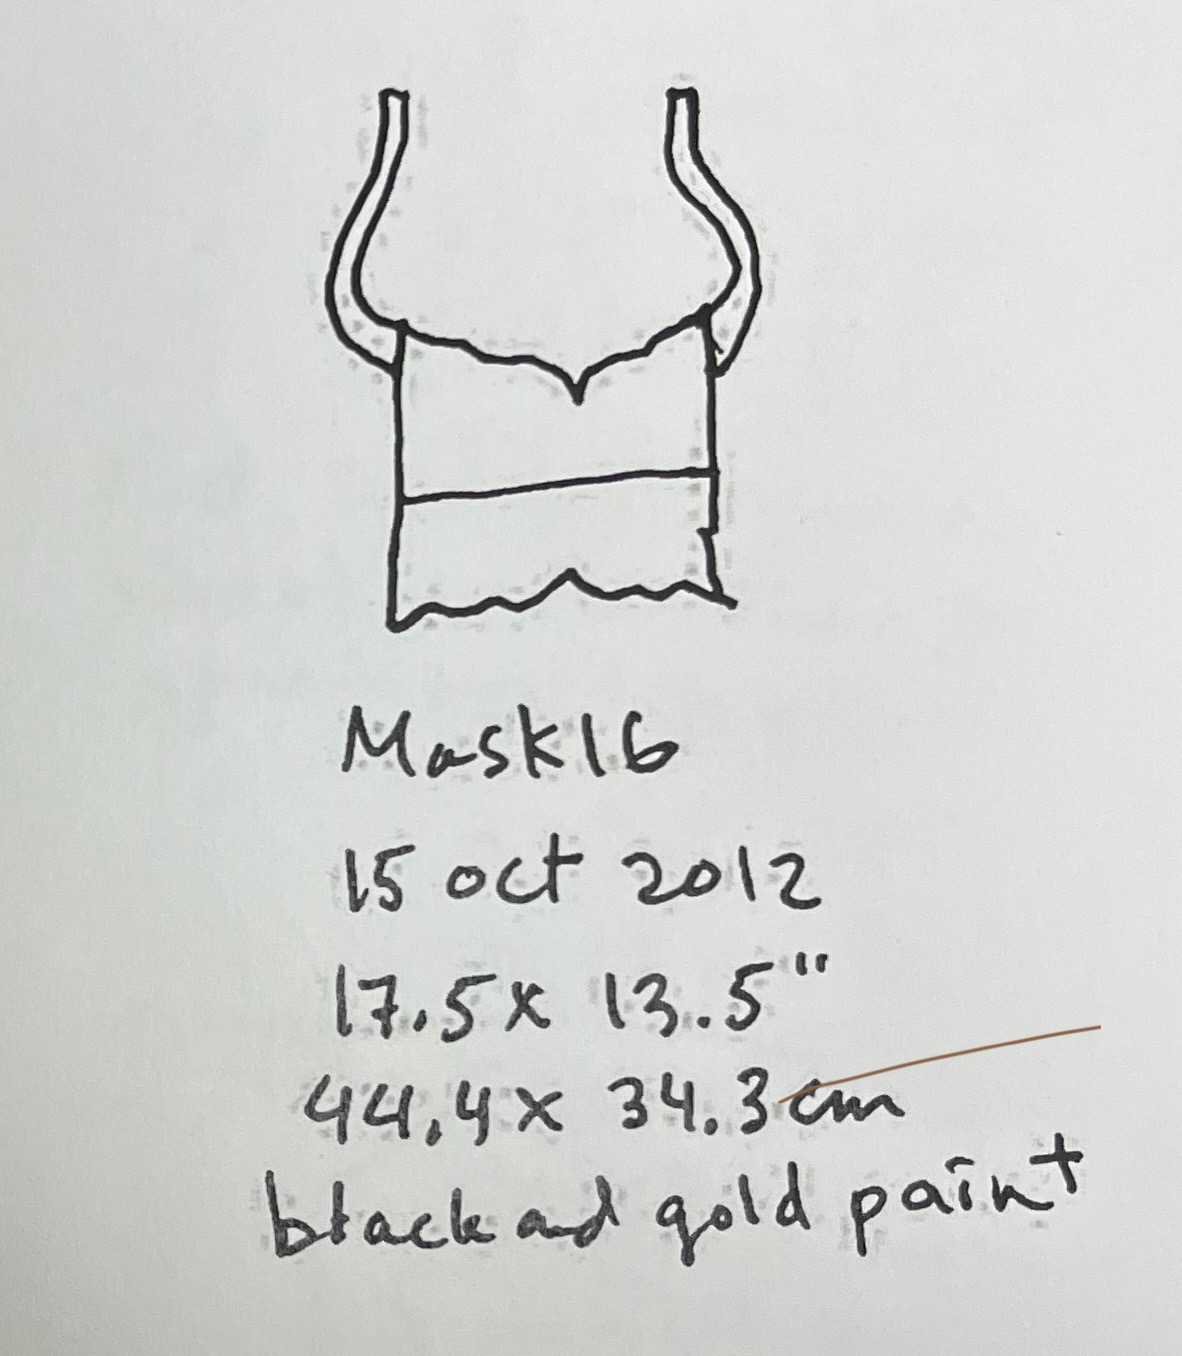 Mask16
15 oct 2012
17.5 x 13.5"
44.4 x 34.3 cm
black and gold paint